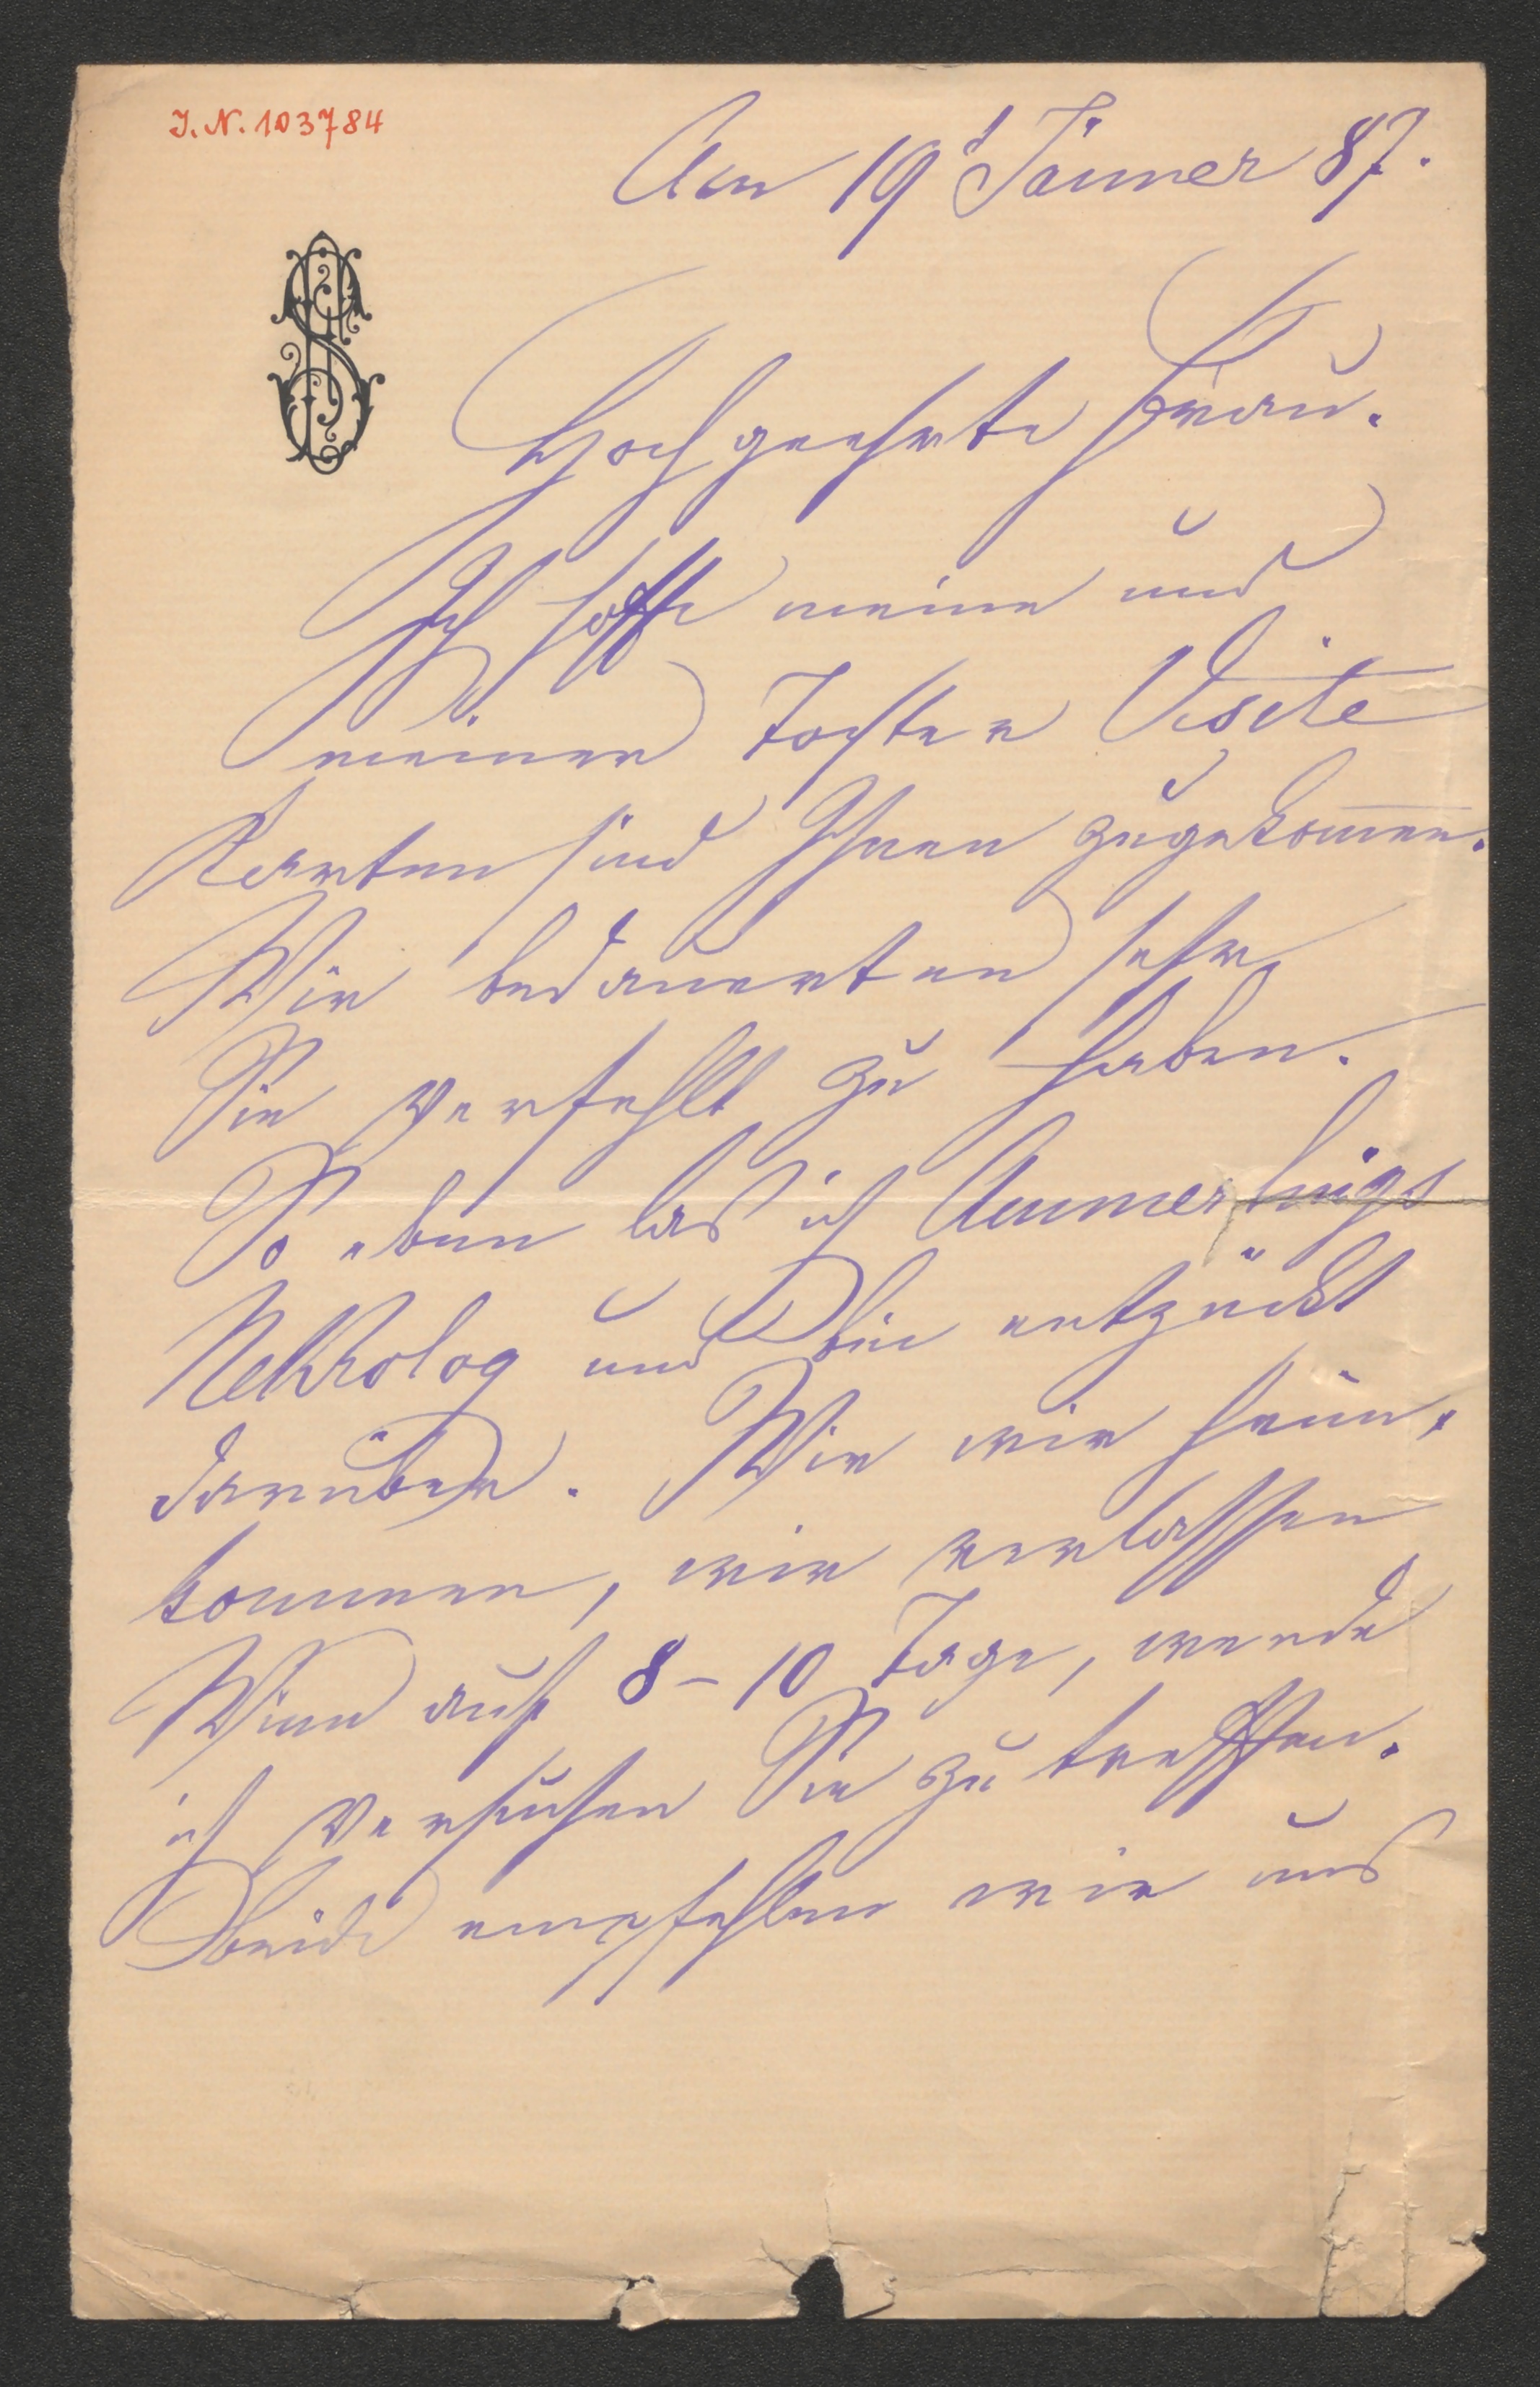 I. N. 103784
Am 19t Jänner 87.
Hochgeehrte Frau.
Ich hoffe meine und
meiner Tochter Visite
Karten sind Ihnen zugekom̅en.
Wir bedauerten sehr
Sie verfehlt zu haben.
So eben las ich Ammerlings
Nekrolog und bin entzückt
darüber. Wie wir heim-
kommen, wir verlassen
Wien auf 8 – 10 Tage, werde
ich versuchen Sie zu treffen.
Beide empfehlen wir uns